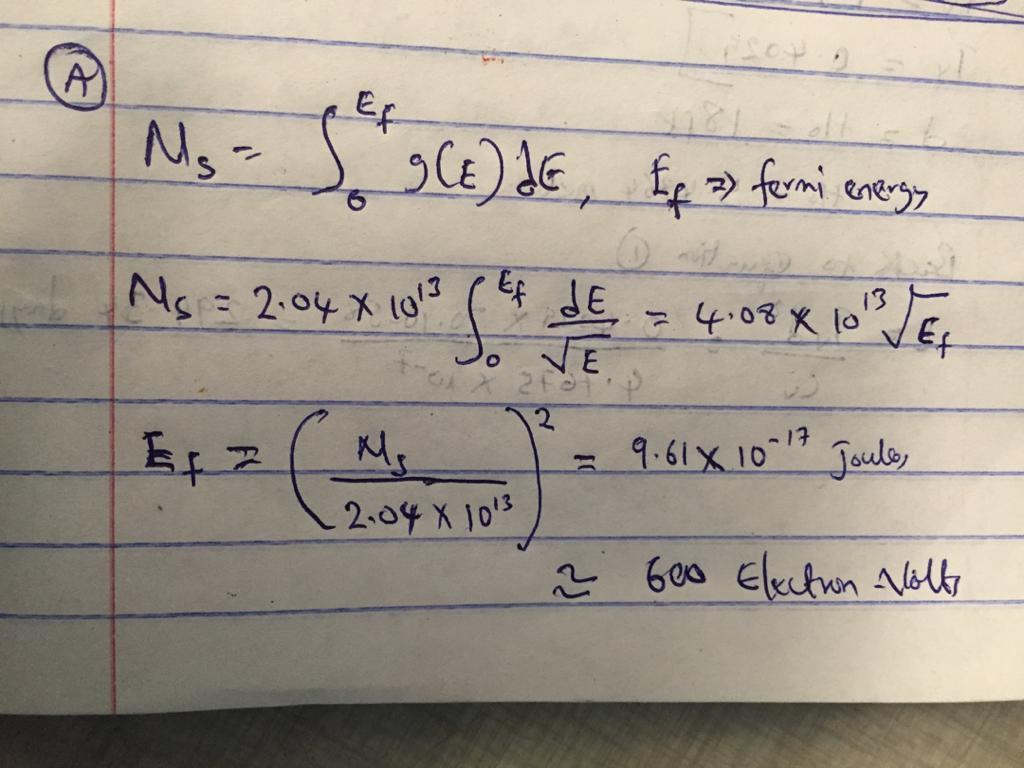 A
N_s = ∫_0^{E_f} g(E) dE, E_f => fermi energy
N_s = 2.04 × 10^13 ∫_0^{E_f} dE/√E = 4.08 × 10^13 √E_f
E_f = (N_s / 2.04 × 10^13)^2 = 9.61 × 10^-17 joules
≈ 600 Electron-Volts